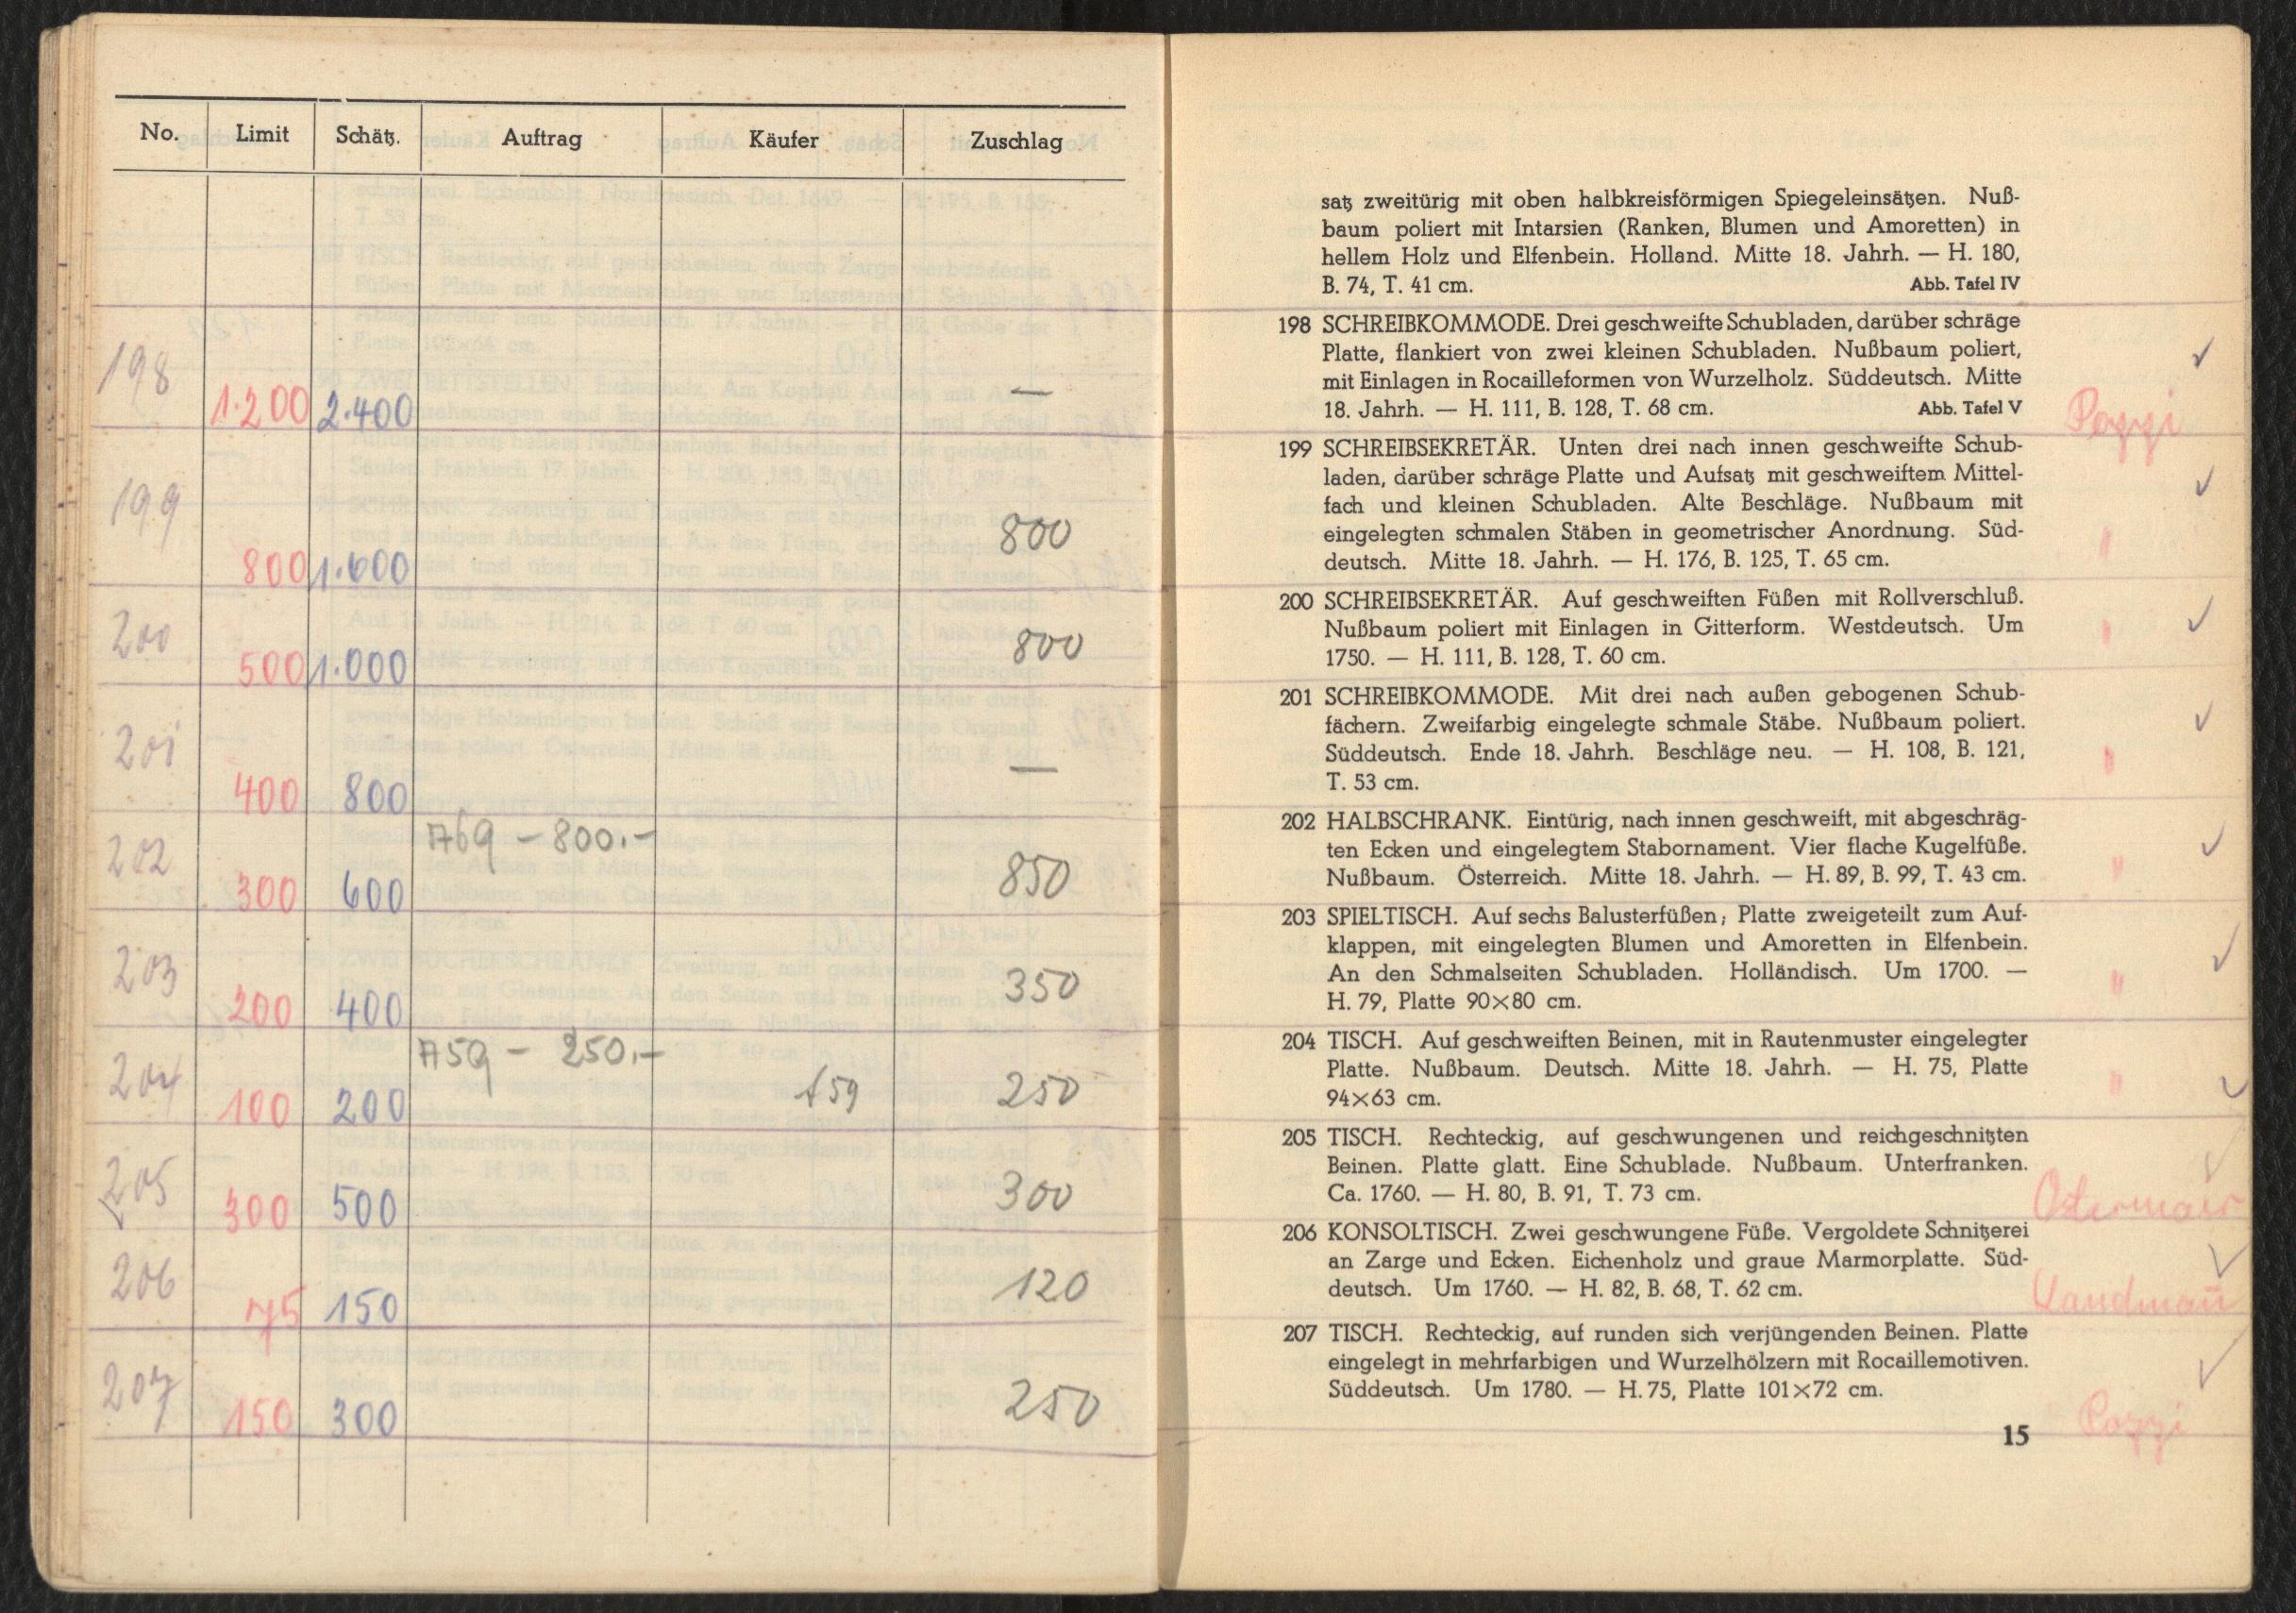 No. Limit Schätz. Auftrag Käufer Zuschlag
198 1.200 2.400 —
199 800 1.600 800
200 500 1.000 800
201 400 800 —
202 300 600 A69 – 800.– 850
203 200 400 350
204 100 200 A59 – 250.– A59 250
205 300 500 300
206 75 150 120
207 150 300 250
satz zweitürig mit oben halbkreisförmigen Spiegeleinsätzen. Nuß-
baum poliert mit Intarsien (Ranken, Blumen und Amoretten) in
hellem Holz und Elfenbein. Holland. Mitte 18. Jahrh. — H. 180,
B. 74, T. 41 cm. Abb. Tafel IV
198 SCHREIBKOMMODE. Drei geschweifte Schubladen, darüber schräge
Platte, flankiert von zwei kleinen Schubladen. Nußbaum poliert, ✓
mit Einlagen in Rocailleformen von Wurzelholz. Süddeutsch. Mitte
18. Jahrh. — H. 111, B. 128, T. 68 cm. Abb. Tafel V Pozzi
199 SCHREIBSEKRETÄR. Unten drei nach innen geschweifte Schub-
laden, darüber schräge Platte und Aufsatz mit geschweiftem Mittel- ✓
fach und kleinen Schubladen. Alte Beschläge. Nußbaum mit
eingelegten schmalen Stäben in geometrischer Anordnung. Süd- "
deutsch. Mitte 18. Jahrh. — H. 176, B. 125, T. 65 cm.
200 SCHREIBSEKRETÄR. Auf geschweiften Füßen mit Rollverschluß. ✓
Nußbaum poliert mit Einlagen in Gitterform. Westdeutsch. Um "
1750. — H. 111, B. 128, T. 60 cm.
201 SCHREIBKOMMODE. Mit drei nach außen gebogenen Schub-
fächern. Zweifarbig eingelegte schmale Stäbe. Nußbaum poliert. ✓
Süddeutsch. Ende 18. Jahrh. Beschläge neu. — H. 108, B. 121, "
T. 53 cm.
202 HALBSCHRANK. Eintürig, nach innen geschweift, mit abgeschräg-
ten Ecken und eingelegtem Stabornament. Vier flache Kugelfüße. ✓
Nußbaum. Österreich. Mitte 18. Jahrh. — H. 89, B. 99, T. 43 cm. "
203 SPIELTISCH. Auf sechs Balusterfüßen; Platte zweigeteilt zum Auf-
klappen, mit eingelegten Blumen und Amoretten in Elfenbein. ✓
An den Schmalseiten Schubladen. Holländisch. Um 1700. — "
H. 79, Platte 90×80 cm.
204 TISCH. Auf geschweiften Beinen, mit in Rautenmuster eingelegter
Platte. Nußbaum. Deutsch. Mitte 18. Jahrh. — H. 75, Platte " ✓
94×63 cm.
205 TISCH. Rechteckig, auf geschwungenen und reichgeschnitzten
Beinen. Platte glatt. Eine Schublade. Nußbaum. Unterfranken. ✓
Ca. 1760. — H. 80, B. 91, T. 73 cm. Ostermair
206 KONSOLTISCH. Zwei geschwungene Füße. Vergoldete Schnitzerei
an Zarge und Ecken. Eichenholz und graue Marmorplatte. Süd- ✓
deutsch. Um 1760. — H. 82, B. 68, T. 62 cm. Landman̄
207 TISCH. Rechteckig, auf runden sich verjüngenden Beinen. Platte
eingelegt in mehrfarbigen und Wurzelhölzern mit Rocaillemotiven. ✓
Süddeutsch. Um 1780. — H. 75, Platte 101×72 cm.
Pozzi
15